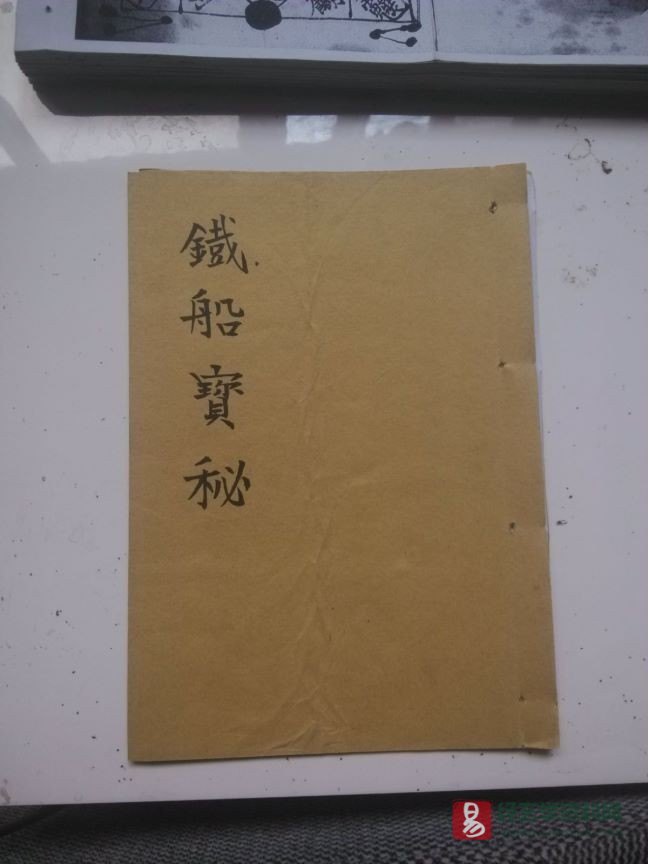 鐵船寶秘
易